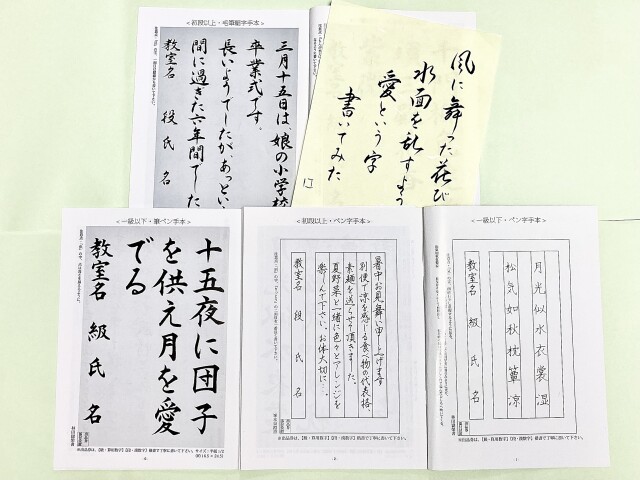 ＜初段以上・毛筆細字手本＞
三月十五日は、娘の小学校
卒業式です。
長いようでしたが、あっとい
間に過ぎた六年間でした
教室名 段 氏 名
風に舞った花び
水面を乱すよう
愛という字
書いてみた
＜一級以下・筆ペン手本＞
十五夜に団子
を供え月を愛
でる
教室名 級 氏 名
＜初段以上・ペン字手本＞
暑中お見舞い申し上げます
別便で涼を感じる食べ物の代表格、
素麺を送らせて頂きました。
夏野菜と一緒に色々とアレンジを
楽しんで下さい。お体大切に…
教室名 段 氏 名
＜一級以下・ペン字手本＞
月光似水衣裳湿
松気如秋枕簟涼
教室名 級 氏 名